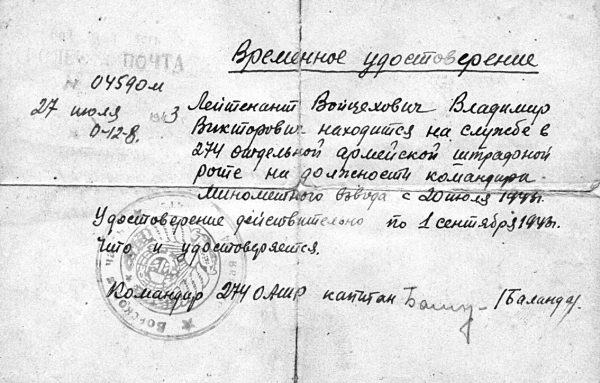 Временное удостоверение
ПОЧТА
04590м
27 июля 1943
0-12-8.
Лейтенант Войцехович Владимир
Викторович находится на службе в
274 отдельной армейской штрафной
роте на должности командира
Минометного взвода с 20 июля 1943г.
Удостоверение действительно по 1 сентября 1943г.
Что и удостоверяется.
Командир 274 ОАШР капитан /Баланда/.